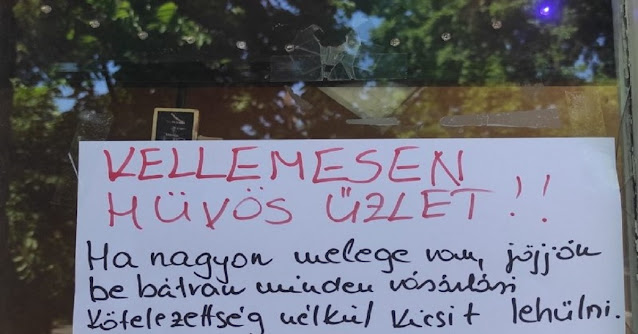 KELLEMESEN
HŰVÖS ÜZLET!!
Ha nagyon melege van, jöjjön
be bátran minden vásárlási
kötelezettség nélkül kicsit lehülni.